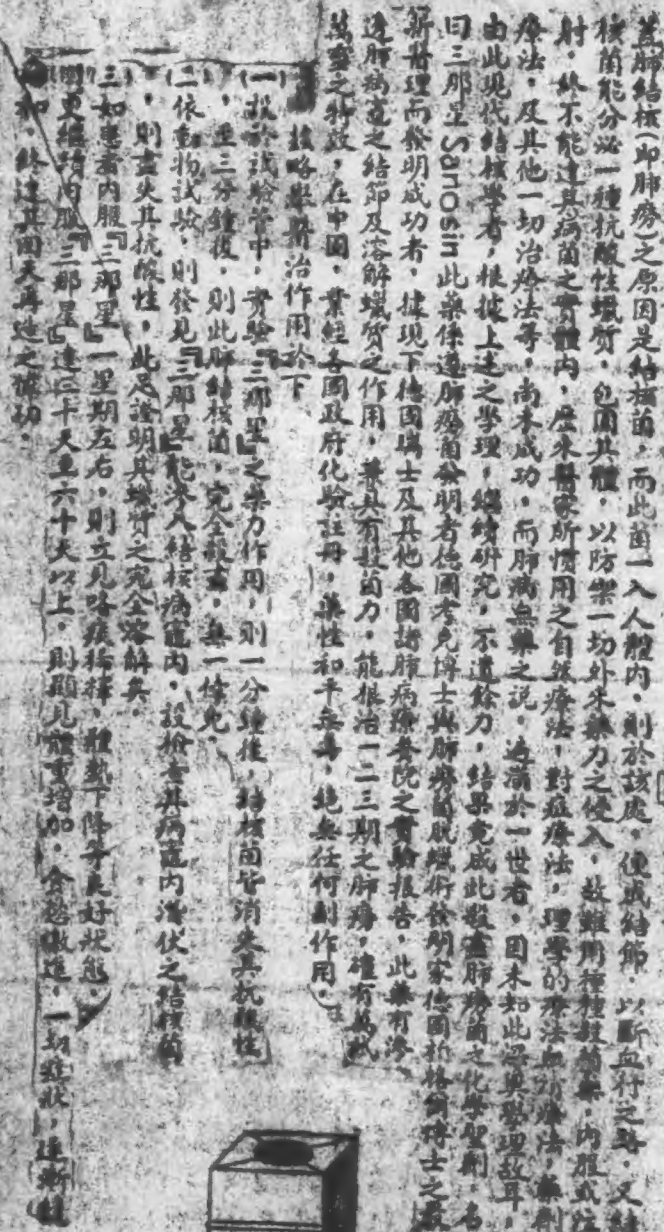 蓋肺結核(即肺癆)之原因是結核菌，而此菌一入人體內，則於該處，便成結節，以斷血行之路，又結
核菌能分泌一種抗酸性蠟質，包圍其體，以防禦一切外來藥力之侵入，故雖用種種殺菌藥，內服或注
射，終不能達其病菌之實體內，歷來醫家所慣用之自然療法，對症療法，理學的療法免疫療法，藥劑
療法，及其他一切治療法等，尚未成功，而肺病無藥之說，遂滿於一世者，因未知此深奧學理故耳
由此現代結核學者，根據上述之學理，繼續研究，不遺餘力，結果完成此殺盡肺癆菌之化學聖劑，名
曰三那星Sanosin此藥係遵肺癆菌發明者德國考克博士與肺癆菌脫蠟術發明家德國 博士之最
新醫理而發明成功者，據現下德國瑞士及其他各國諸肺病療養院之實驗報告，此藥有滲
透肺病竈之結節及溶解蠟質之作用，兼具有殺菌力，能根治一二三期之肺癆，確有萬試
萬靈之特效，在中國，業經各國政府化驗註冊，藥性和平無毒，絕無任何副作用。
茲略舉其治作用於下
(一)投於試驗管中，實驗『三那星』之藥力作用，則一分鐘後，結核菌皆消失其抗酸性
，至三分鐘後，則此肺結核菌，完全殺滅，無一倖免。
(二)依動物試驗，則發見『三那星』能滲入結核病竈內，設檢查其病竈內潛伏之結核菌
，則盡失其抗酸性，此足證明其蠟質之完全溶解矣。
(三)如患者內服『三那星』一星期左右，則立見咯痰稀釋，體熱下降等良好狀態。
則更繼續內服『三那星』達三十天至六十天以上，則顯見體重增加，食慾激進，一切症狀，逐漸輕
和，終達其回天再造之神功。